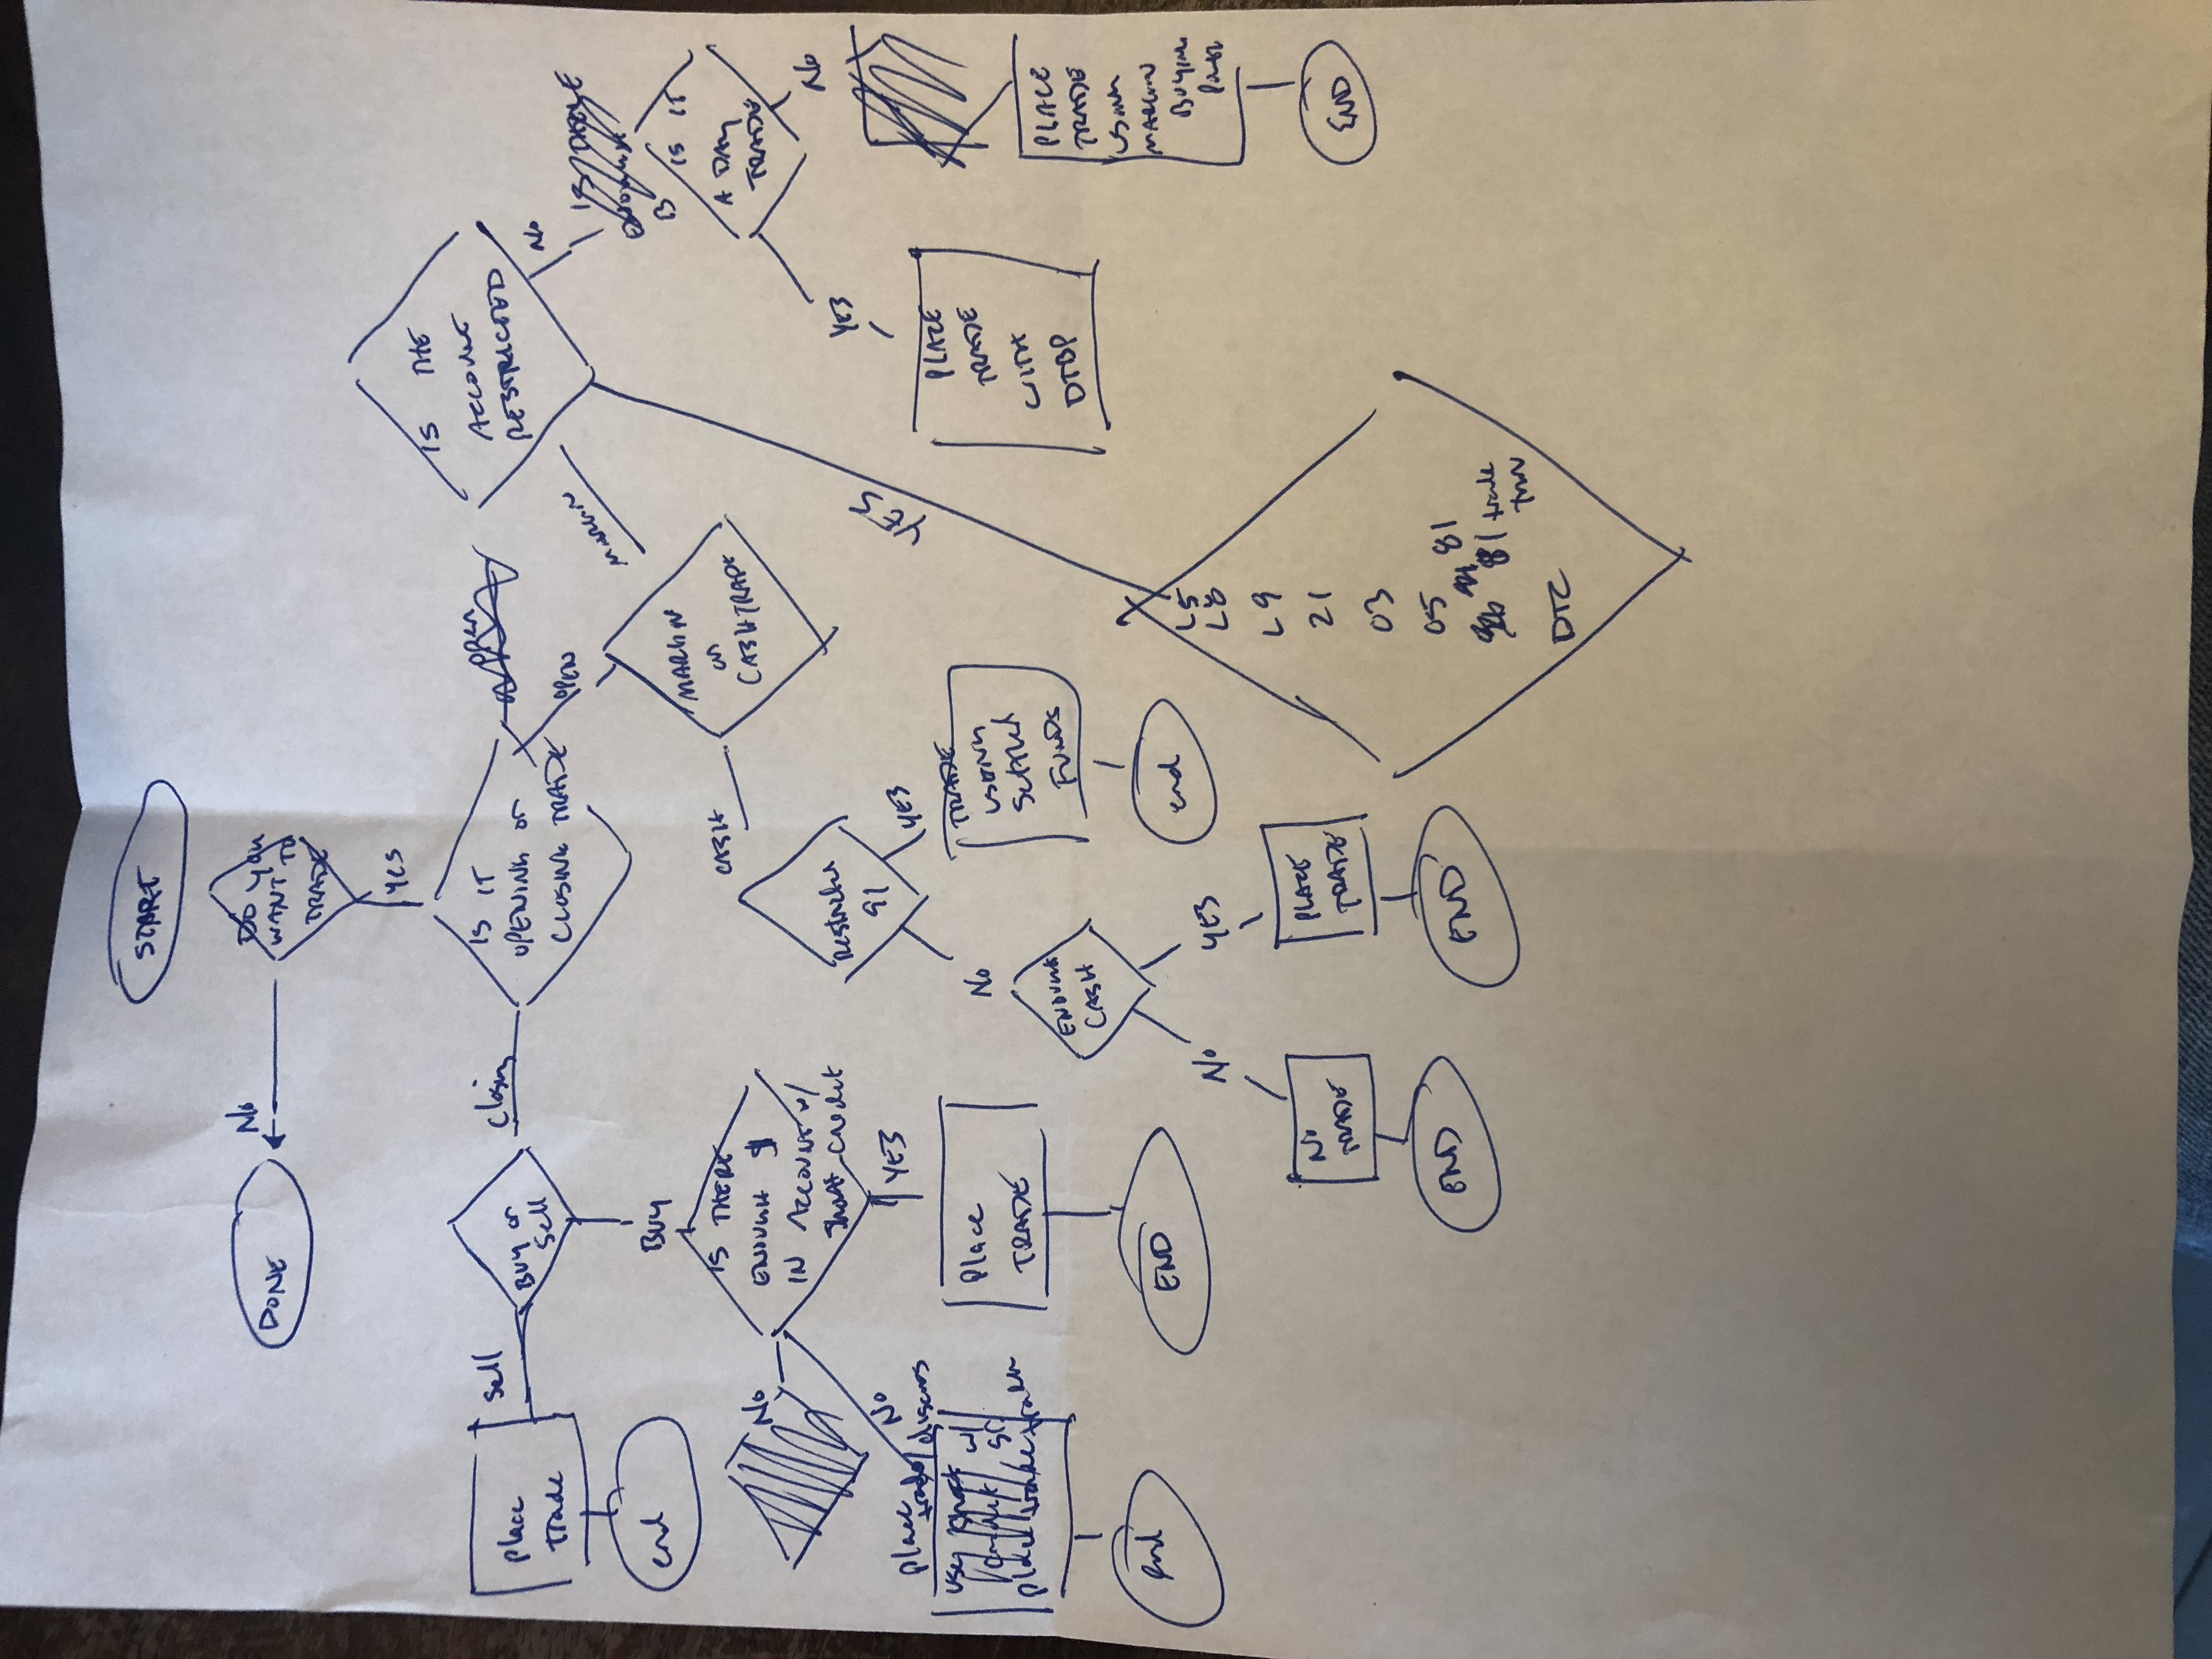 START
DO YOU
WANT TO
TRADE
No
DONE
YES
IS IT
OPENING or
CLOSING TRADE
Closing
BUY or
Sell
Sell
Place
trade
end
BUY
IS THERE
ENOUGH $
IN ACCOUNT w/
Short Credit
No
No
Place
trade/discuss
w/
Sr.
trader
end
YES
Place
TRADE
END
open
OPEN
MARGIN
or
CASH TRADE
CASH
Restricted
91
YES
TRADE
USING
Settled
FUNDS
end
No
ENOUGH
CASH
No
NO
TRADE
END
YES
PLACE
TRADE
END
MARGIN
IS THE
ACCOUNT
RESTRICTED
YES
L5
L8
L9
21
03
05
81
81 trade
DTC
No
IS THERE
B
IS IT
A DAY
TRADE
YES
PLACE
TRADE
WITH
DTBP
No
PLACE
TRADE
USING
MARGIN
Buying
Power
END